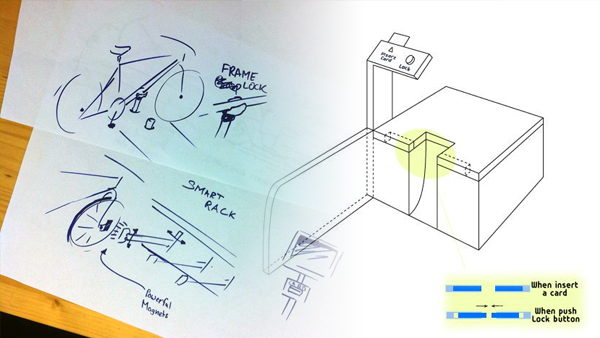 FRAME
LOCK
SMART
RACK
Powerful
Magnets
Insert
Card
Lock
When insert
a card
When push
Lock button